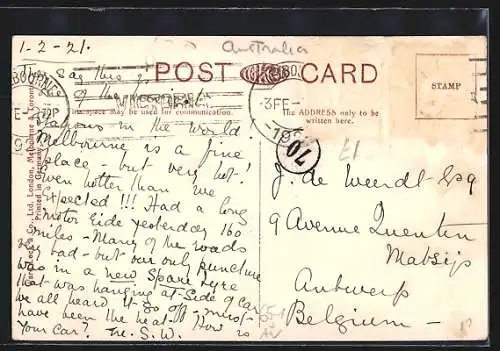 Australia
1-2-21.
They say this is
of the finest
POST CARD
STAMP
3 FE
This space may be used for communication.
The ADDRESS only to be
written here.
Stations in the World!
Melbourne is a fine
place - but very hot!
even hotter than we
expected!!! Had a long
Motor Ride yesterday 160
miles - Many of the roads
very bad - but our only puncture
was in a new Spare Tyre
that was hanging at side of car
we all heard it go off - must
have been the heat. How is
Your Car? S.W.
70
£1
J. de Weerdt Esq
9 Avenue Quentin
Matsijs
Antwerp
Belgium
Co., Ltd. London, Melbourne & Toronto
Printed in Germany